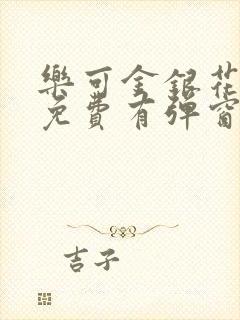 樂可金銀花
免費有彈窗
吉子